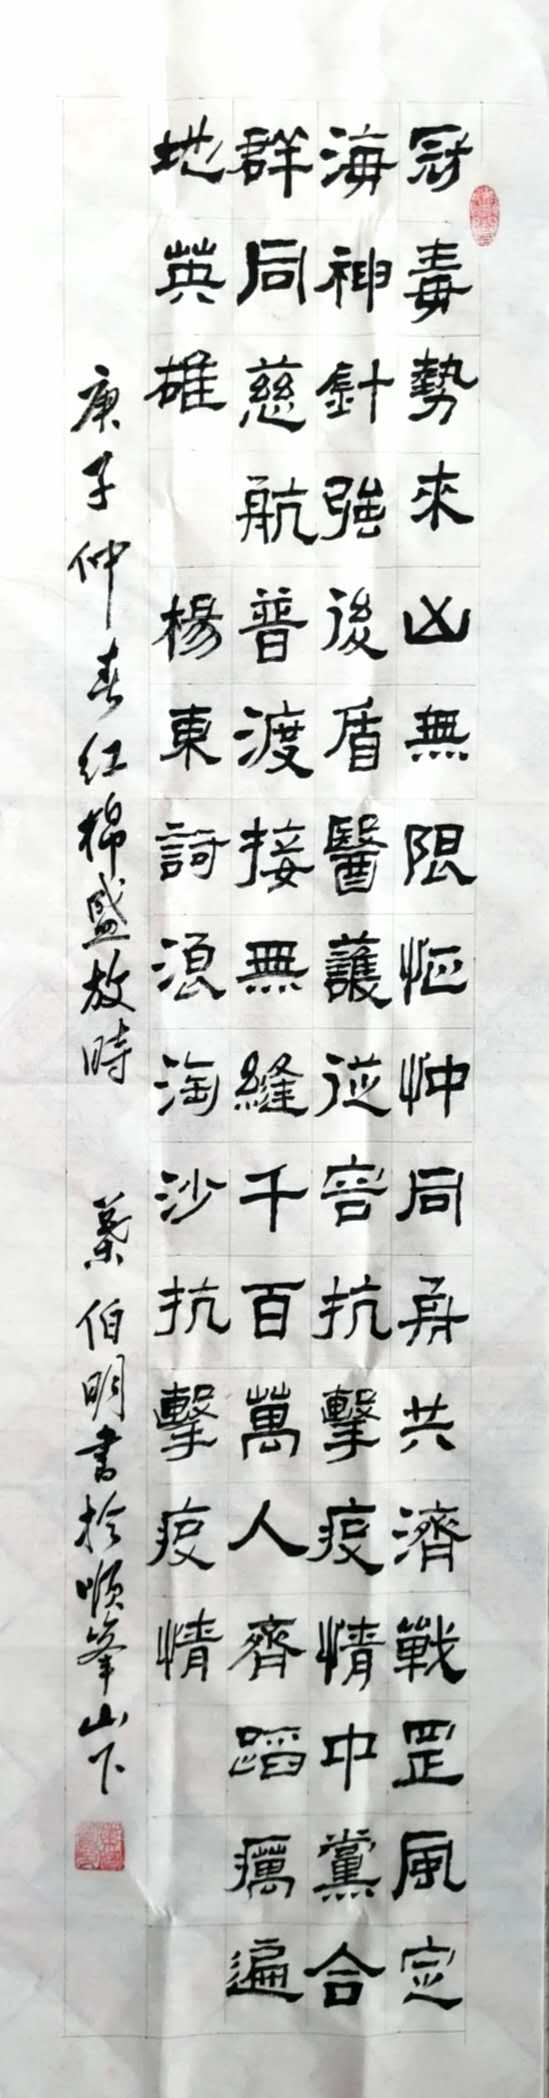 冠毒勢來凶無限怔忡同舟共濟戰罡風定
海神針強後盾醫護從容抗擊疫情中黨合
群同慈航普渡接無縫千百萬人齊蹈癘遍
地英雄 楊東詞浪淘沙抗擊疫情
庚子仲春红棉盛放時 蔡伯明書於順峯山下